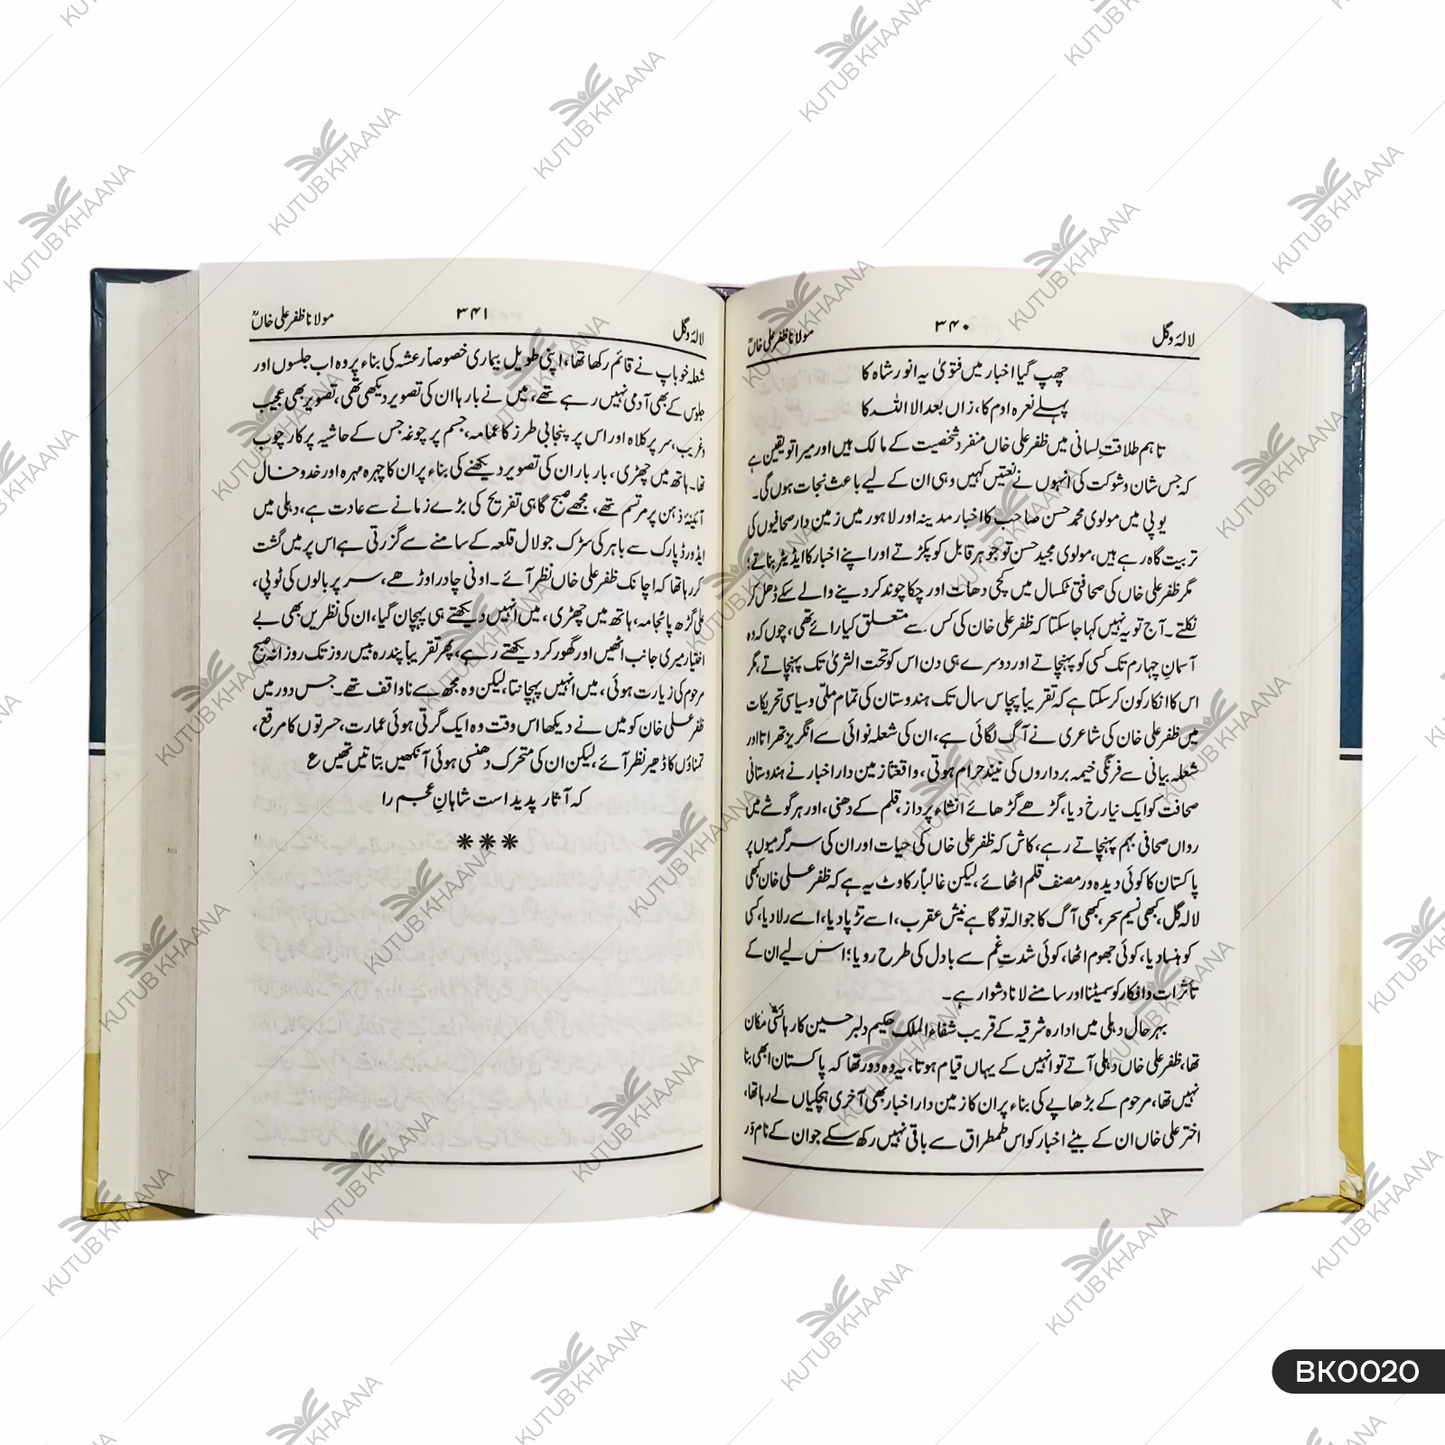 لالہ وگل
۳۴۰
مولانا ظفر علی خاںؒ
چھپ گیا اخبار میں فتویٰ یہ انور شاہ کا
پہلے نعرہ اوم کا، زاں بعد الا اللہ کا
تاہم طلاقتِ لسانی میں ظفر علی خاں منفرد شخصیت کے مالک ہیں اور میرا تو یقین ہے
کہ جس شان و شوکت کی انہوں نے نعتیں کہیں وہی ان کے لیے باعث نجات ہوں گی۔
یوپی میں مولوی محمد حسن صاحب کا اخبار مدینہ اور لاہور میں زمین دار صحافیوں کی
تربیت گاہ رہے ہیں، مولوی مجید حسن تو جوہر قابل کو پکڑتے اور اپنے اخبار کا ایڈیٹر بناتے؛
مگر ظفر علی خاں کی صحافتی ٹکسال میں کچی دھات اور چکا چوند کر دینے والے سکے ڈھل کر
نکلتے۔ آج تو یہ نہیں کہا جا سکتا کہ ظفر علی خان کی کس سے متعلق کیا رائے تھی، چوں کہ وہ
آسمانِ چہارم تک کسی کو پہنچاتے اور دوسرے ہی دن اس کو تحت الثریٰ تک پہنچاتے، مگر
اس کا انکار کون کر سکتا ہے کہ تقریباً پچاس سال تک ہندوستان کی تمام ملّی و سیاسی تحریکات
میں ظفر علی خان کی شاعری نے آگ لگائی ہے، ان کی شعلہ نوائی سے انگریز تھراتا اور
شعلہ بیانی سے فرنگی خیمہ برداروں کی نیند حرام ہوتی، واقعتاً زمین دار اخبار نے ہندوستانی
صحافت کو ایک نیا رخ دیا، گڑھے گڑھائے انشاء پرداز، قلم کے دھنی، اور ہر گوشے میں
رواں صحافی بہم پہنچاتے رہے، کاش کہ ظفر علی خاں کی حیات اور ان کی سرگرمیوں پر
پاکستان کا کوئی دیدہ ور مصنف قلم اٹھائے، لیکن غالباً رکاوٹ یہ ہے کہ ظفر علی خان کبھی
لالہ گل، کبھی نسیم سحر، کبھی آگ کا جوالہ تو گاہے نیش عقرب، اسے تڑپا دیا، اسے رلا دیا، کسی
کو ہنسا دیا، کوئی جھوم اٹھا، کوئی شدتِ غم سے بادل کی طرح رویا؛ اس لیے ان کے
تأثرات و افکار کو سمیٹنا اور سامنے لانا دشوار ہے۔
بہر حال دہلی میں ادارہ شرقیہ کے قریب شفاء الملک حکیم دلبر حسین کا رہائشی مکان
تھا، ظفر علی خاں دہلی آتے تو انہیں کے یہاں قیام ہوتا، یہ وہ دور تھا کہ پاکستان ابھی بنا
نہیں تھا، مرحوم کے بڑھاپے کی بناء پر ان کا زمین دار اخبار بھی آخری ہچکیاں لے رہا تھا،
اختر علی خاں ان کے بیٹے اخبار کو اس طمطراق سے باقی نہیں رکھ سکے جو ان کے نام ور
لالہ وگل
۳۴۱
مولانا ظفر علی خاںؒ
شعلہ خو باپ نے قائم رکھا تھا، اپنی طویل بیماری خصوصاً رعشہ کی بناء پر وہ اب جلسوں اور
جلوس کے بھی آدمی نہیں رہے تھے، میں نے بارہا ان کی تصویر دیکھی تھی، تصویر بھی عجیب
وغریب، سر پر کلاہ اور اس پر پنجابی طرز کا عمامہ، جسم پر چوغہ جس کے حاشیہ پر کار چوب
تھا۔ ہاتھ میں چھڑی، بار بار ان کی تصویر دیکھنے کی بناء پر ان کا چہرہ مہرہ اور خدوخال
آئینۂ ذہن پر مرتسم تھے، مجھے صبح گاہی تفریح کی بڑے زمانے سے عادت ہے، دہلی میں
ایڈورڈ پارک سے باہر کی سڑک جو لال قلعہ کے سامنے سے گزرتی ہے اس پر میں گشت
کر رہا تھا کہ اچانک ظفر علی خاں نظر آئے۔ اونی چادر اوڑھے، سر پر بالوں کی ٹوپی،
علی گڑھ پائجامہ، ہاتھ میں چھڑی، میں انہیں دیکھتے ہی پہچان گیا، ان کی نظریں بھی بے
اختیار میری جانب اٹھیں اور گھور کر دیکھتے رہے، پھر تقریباً پندرہ بیس روز تک روزانہ صبح
مرحوم کی زیارت ہوئی، میں انہیں پہچانتا، لیکن وہ مجھ سے ناواقف تھے۔ جس دور میں
ظفر علی خان کو میں نے دیکھا اس وقت وہ ایک گرتی ہوئی عمارت، حسرتوں کا مرقع،
تمناؤں کا ڈھیر نظر آئے، لیکن ان کی متحرک دھنسی ہوئی آنکھیں بتاتیں تھیں ع
کہ آثار پدید است شاہانِ عجم را
***
KUTUB KHAANA
BK0020